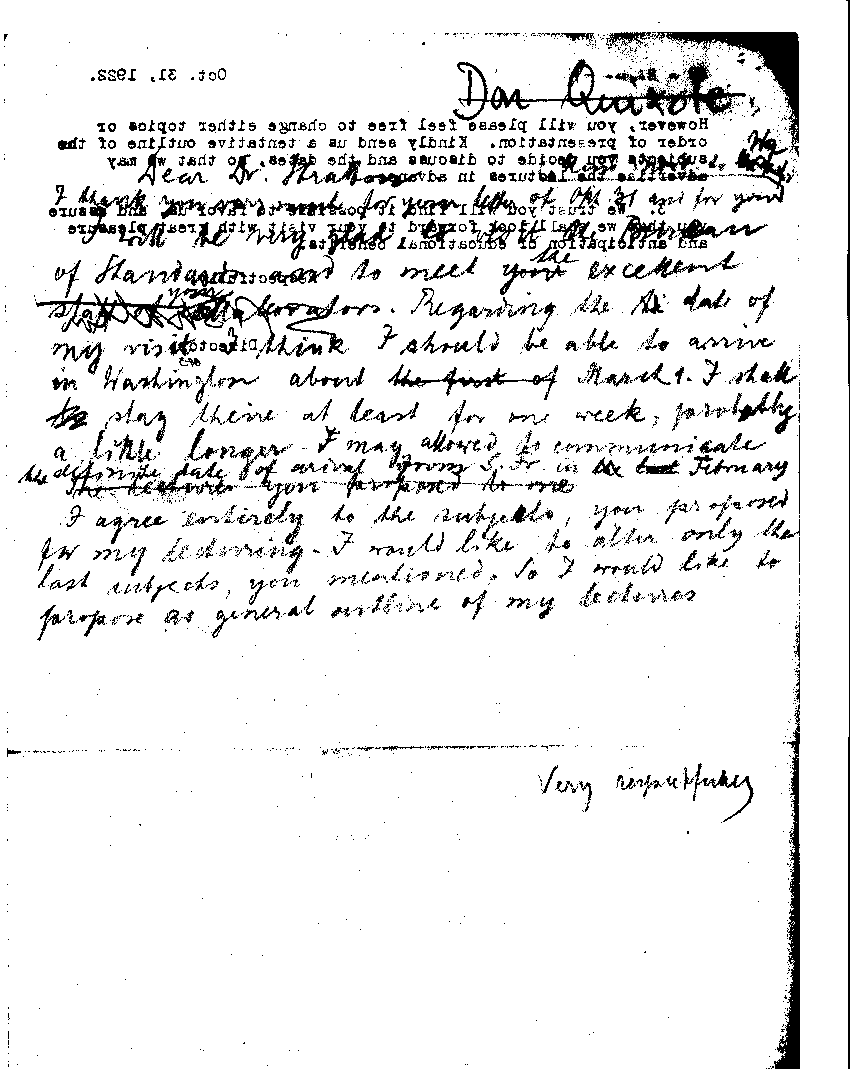 Oct. 31, 1922.
Don Quixote
However, you will please feel free to change either topics or
order of presentation. Kindly send us a tentative outline of the
subjects you decide to discuss and the dates, so that we may
advertise the lectures in advance.
Dear Dr. Stratton
I thank you very much for your letter of Okt 31 and for your
3. We trust you will find it possible to favor us and assure
I will be very glad to visit the Bureau
you that we shall look forward to your visit with great pleasure
and anticipation of educational benefits.
of Standards and to meet your the excellent
Respectfully,
staff of your collaborators. Regarding the date of
my visit I think I should be able to arrive
Director.
in Washington about the first of March 1. I shall
stay there at least for one week, probably
a little longer. I may allowed to communicate
the definite date of arival from S. Fr. in the last February
The lectures you proposed to me
I agree entirely to the subjects, you proposed
for my lecturing. I would like to alter only the
last subjects, you mentioned. So I would like to
propose as general outline of my lectures
Very respectfully